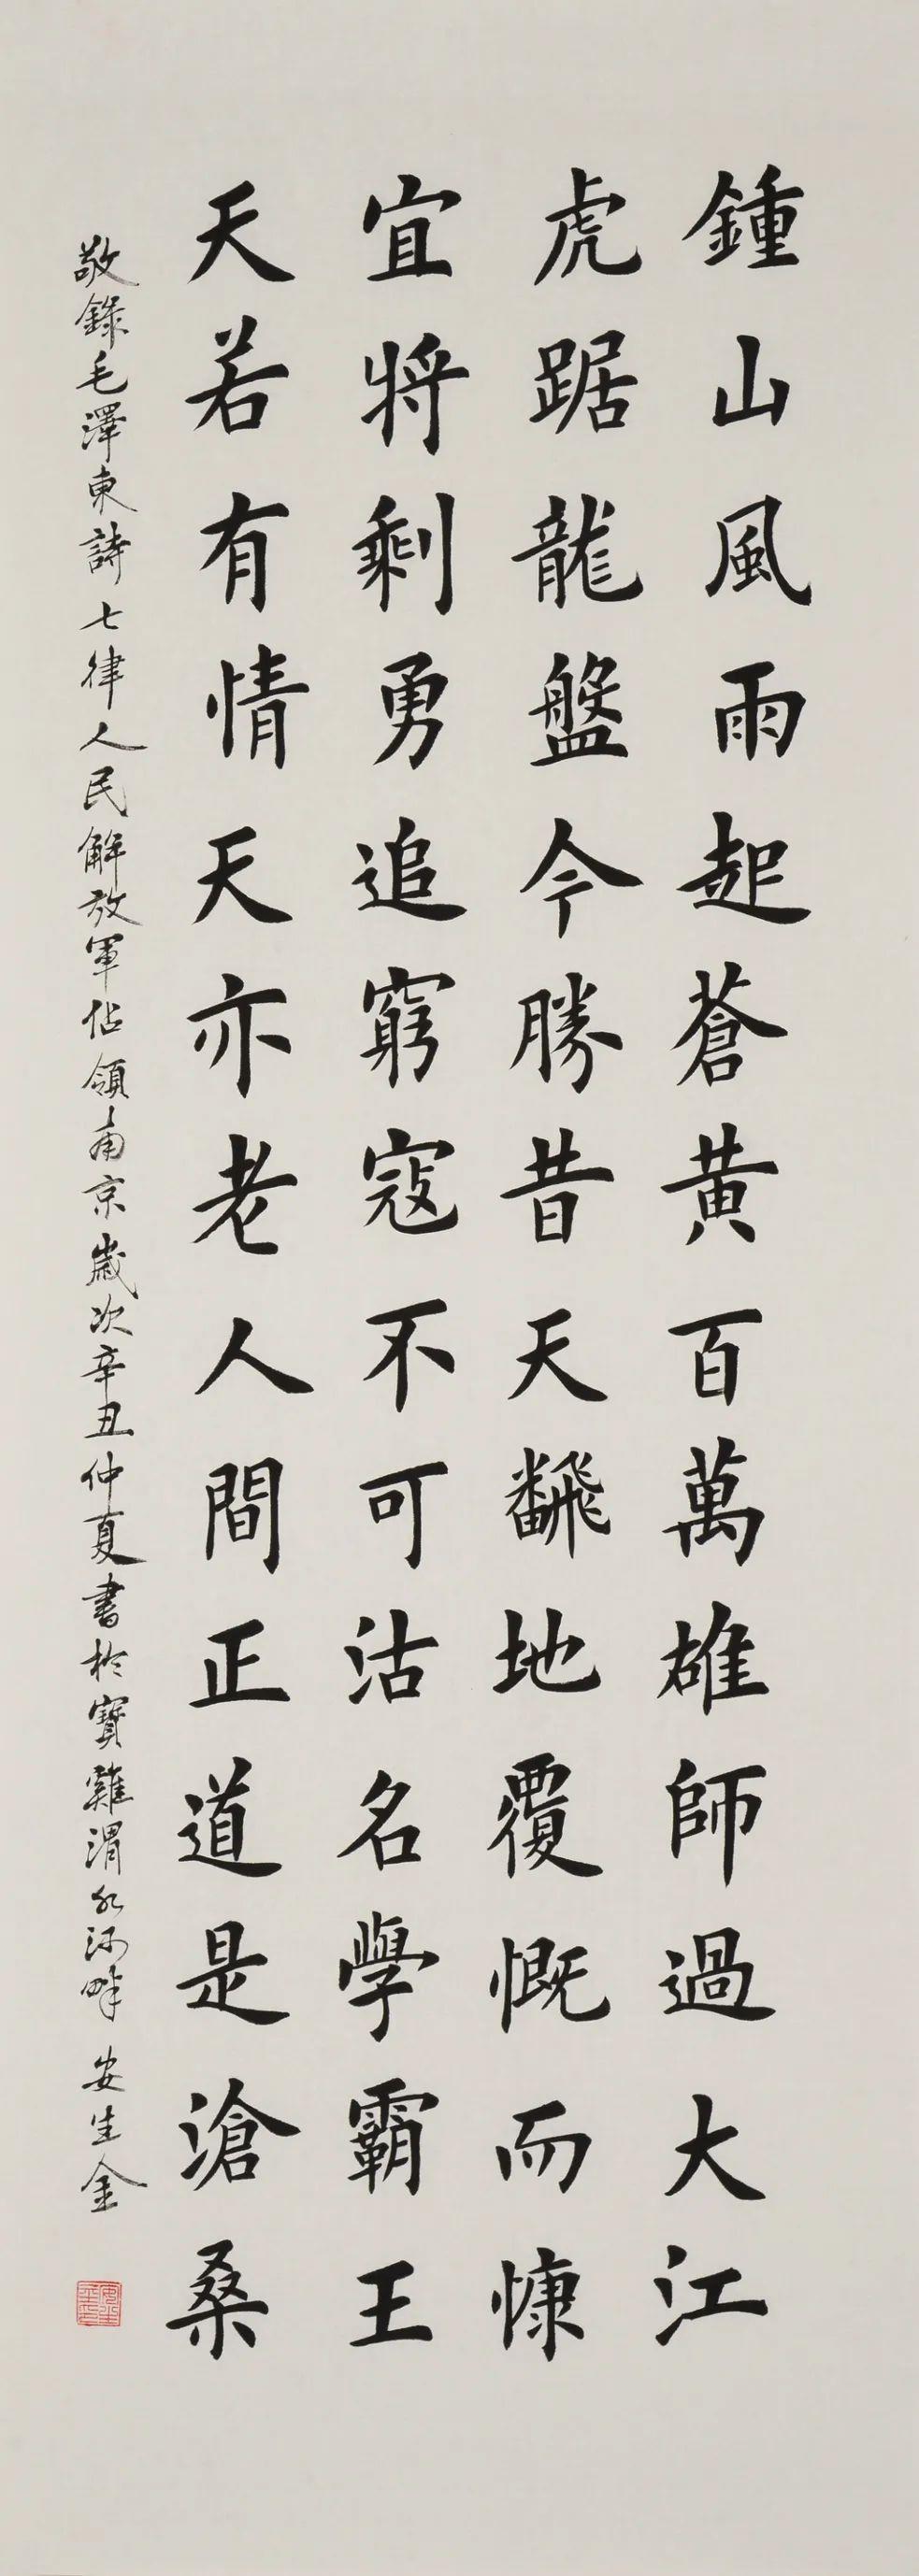 鍾山風雨起蒼黃百萬雄師過大江
虎踞龍盤今勝昔天飜地覆慨而慷
宜將剩勇追窮寇不可沽名學霸王
天若有情天亦老人間正道是滄桑
敬錄毛澤東詩七律人民解放軍佔領南京歲次辛丑仲夏書於寶雞渭水河畔 安生金